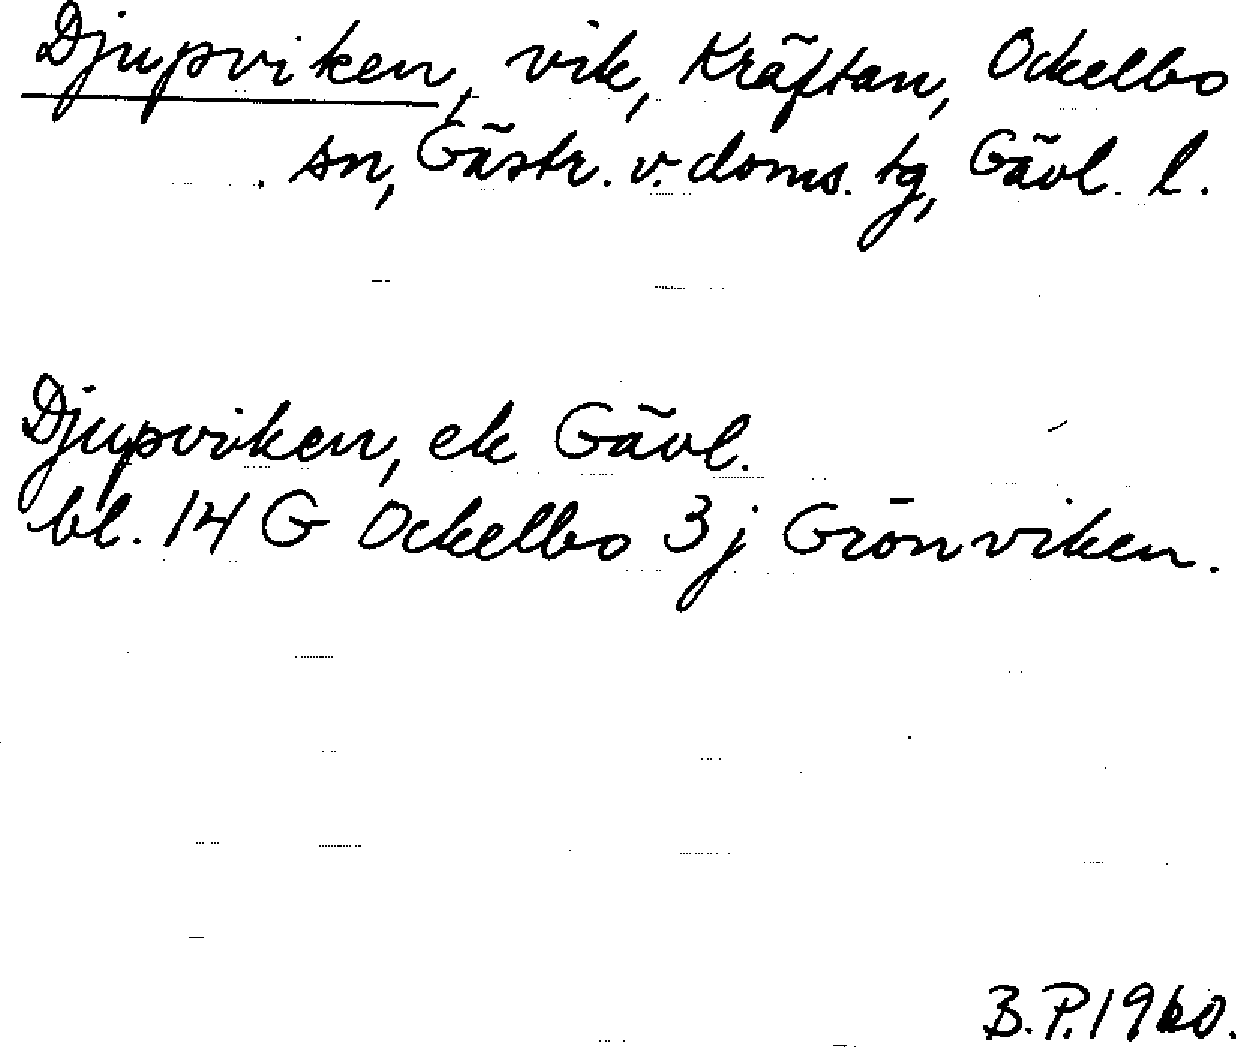 Djupviken, vik, Kräftan, Ockelbo
sn, Gästr. v. doms. tg, Gävl. l.
Djupviken, ek Gävl.
bl. 14 G Ockelbo 3j Grönviken.
B.P. 1960.